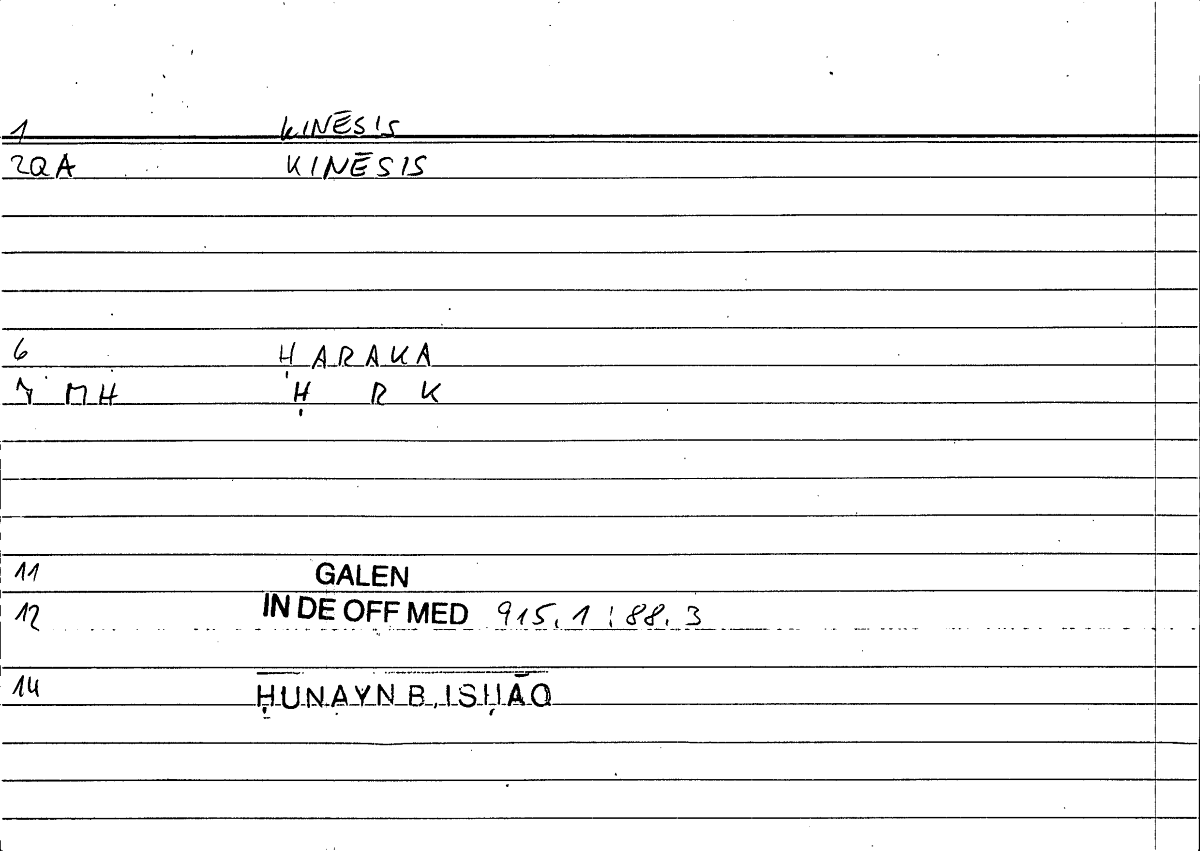 1 KINĒSIS
2QA KINĒSIS
6 ḤARAKA
7 MH Ḥ R K
11 GALEN
12 IN DE OFF MED 915.1:88.3
14 ḤUNAYN B. ISḤĀQ